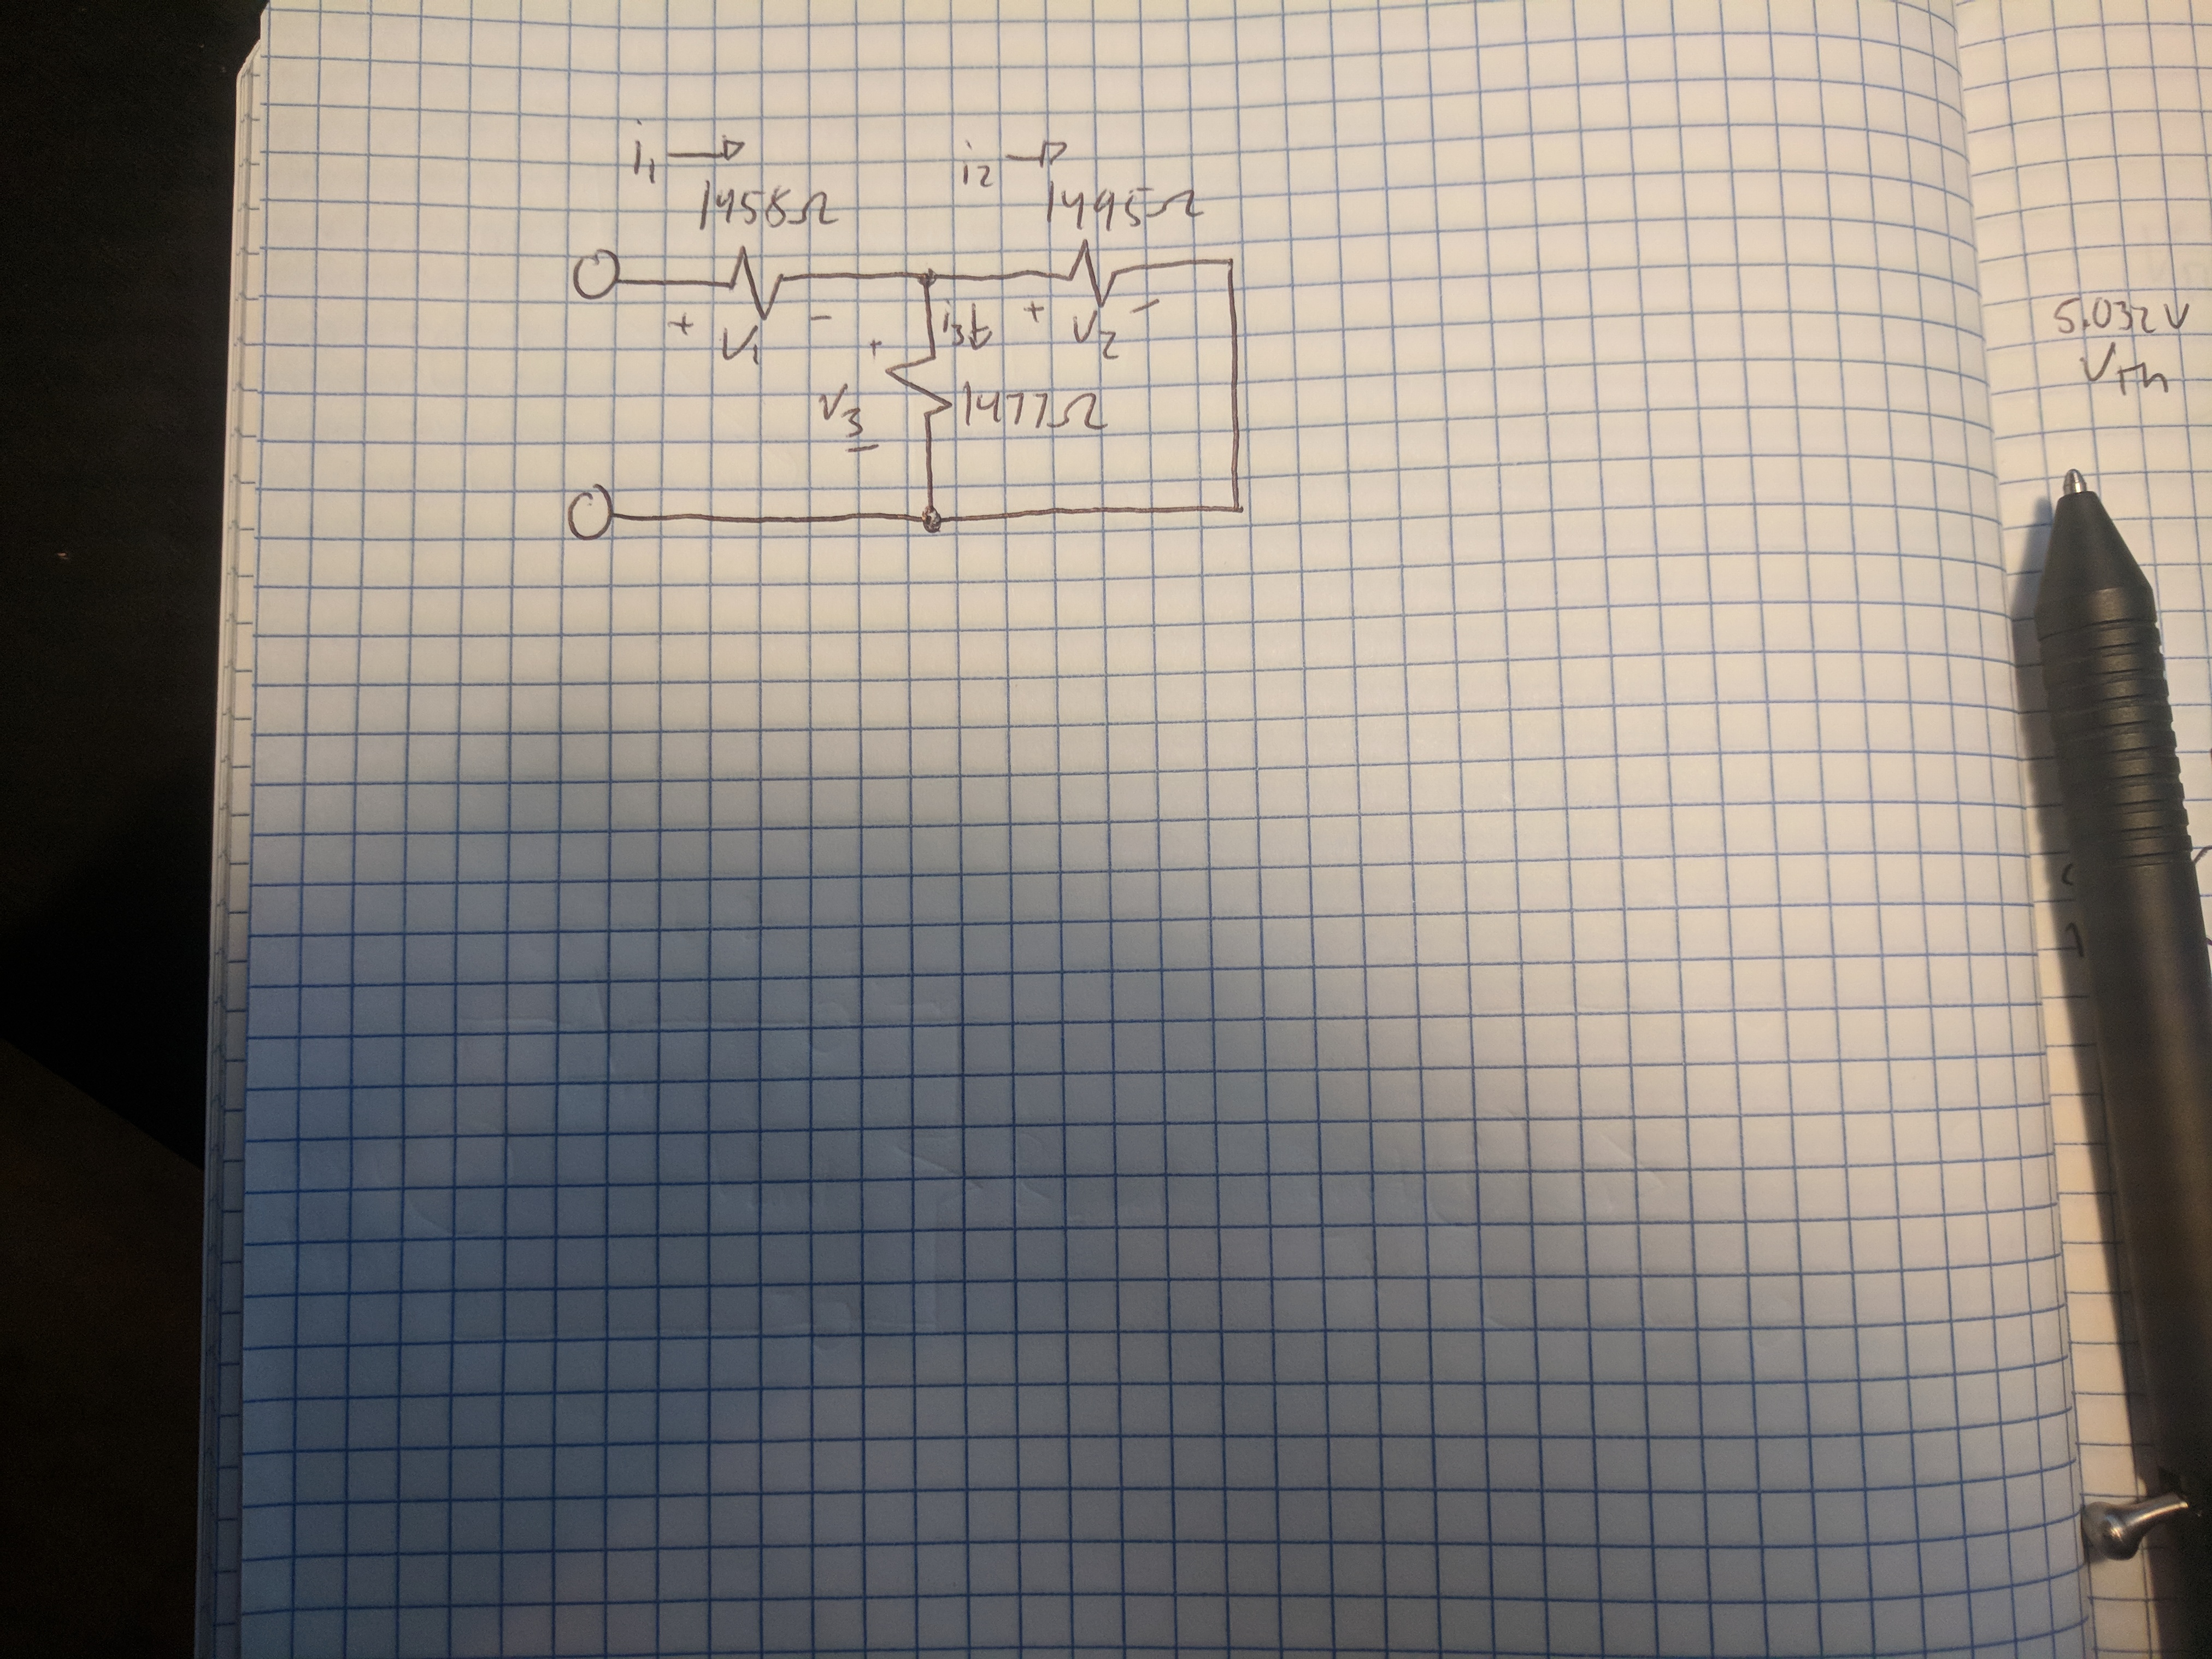 i₁ → i₂ →
1458Ω 1495Ω
+ V₁ - + V₂ -
i₃↓
+
V₃ 1477Ω
-
5.032V
VTh